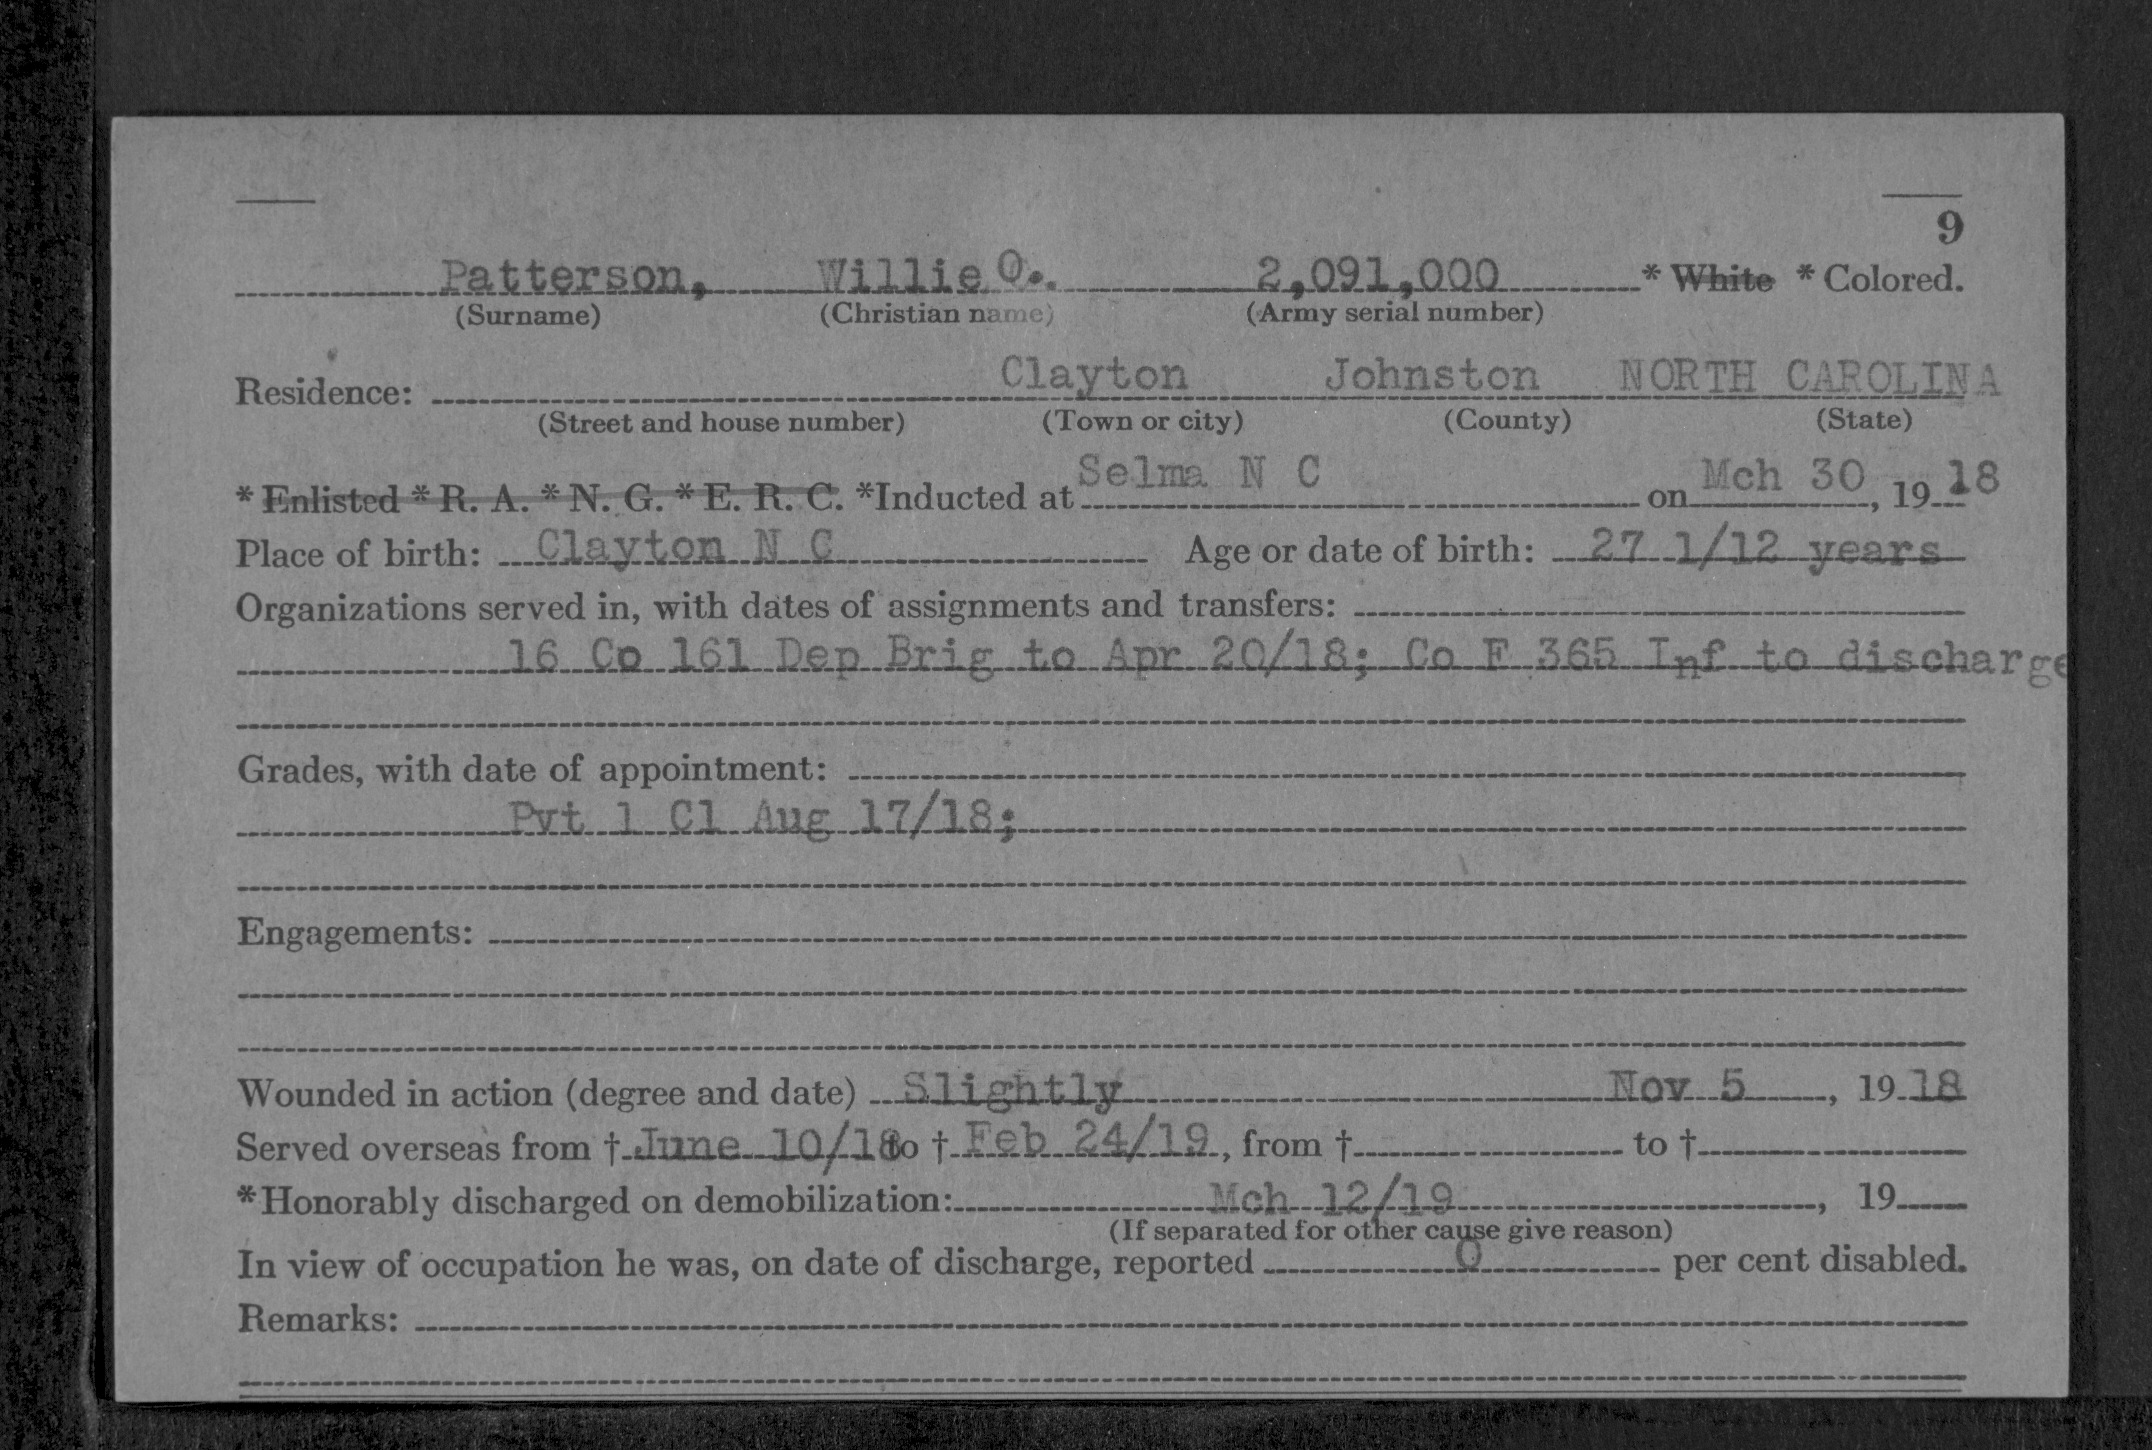 9
Patterson, Willie O. 2,091,000 * White * Colored.
(Surname) (Christian name) (Army serial number)
Clayton Johnston NORTH CAROLINA
Residence:
(Street and house number) (Town or city) (County) (State)
* Enlisted * R. A. * N. G. * E. R. C. *Inducted at Selma N C on Mch 30, 19 18
Place of birth: Clayton N C Age or date of birth: 27 1/12 years
Organizations served in, with dates of assignments and transfers:
16 Co 161 Dep Brig to Apr 20/18; Co F 365 Inf to discharge
Grades, with date of appointment:
Pvt 1 Cl Aug 17/18;
Engagements:
Wounded in action (degree and date) Slightly Nov 5, 19 18
Served overseas from † June 10/18 to † Feb 24/19, from † to †
*Honorably discharged on demobilization: Mch 12/19, 19
(If separated for other cause give reason)
In view of occupation he was, on date of discharge, reported 0 per cent disabled.
Remarks: